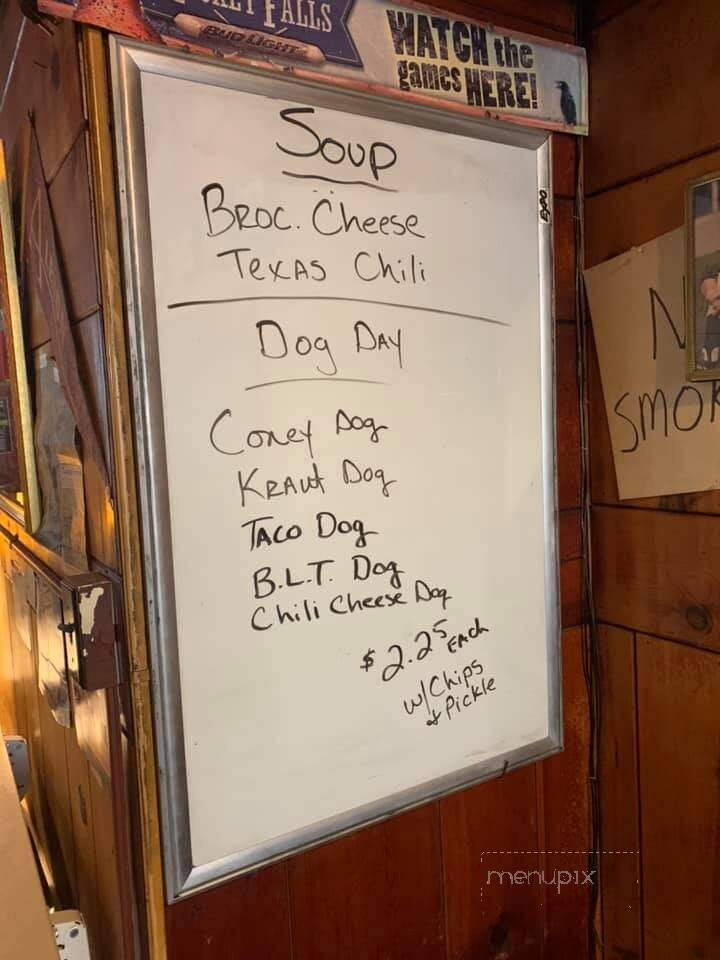 FALLS
BUD LIGHT
WATCH the
games HERE!
SOUP
BROC. Cheese
TEXAS Chili
Dog DAY
Coney Dog
KRAUt Dog
TACO Dog
B.L.T. Dog
Chili Cheese Dog
$2.25 EACh
w/Chips
& Pickle
EXPO
N
SMOK
menupix